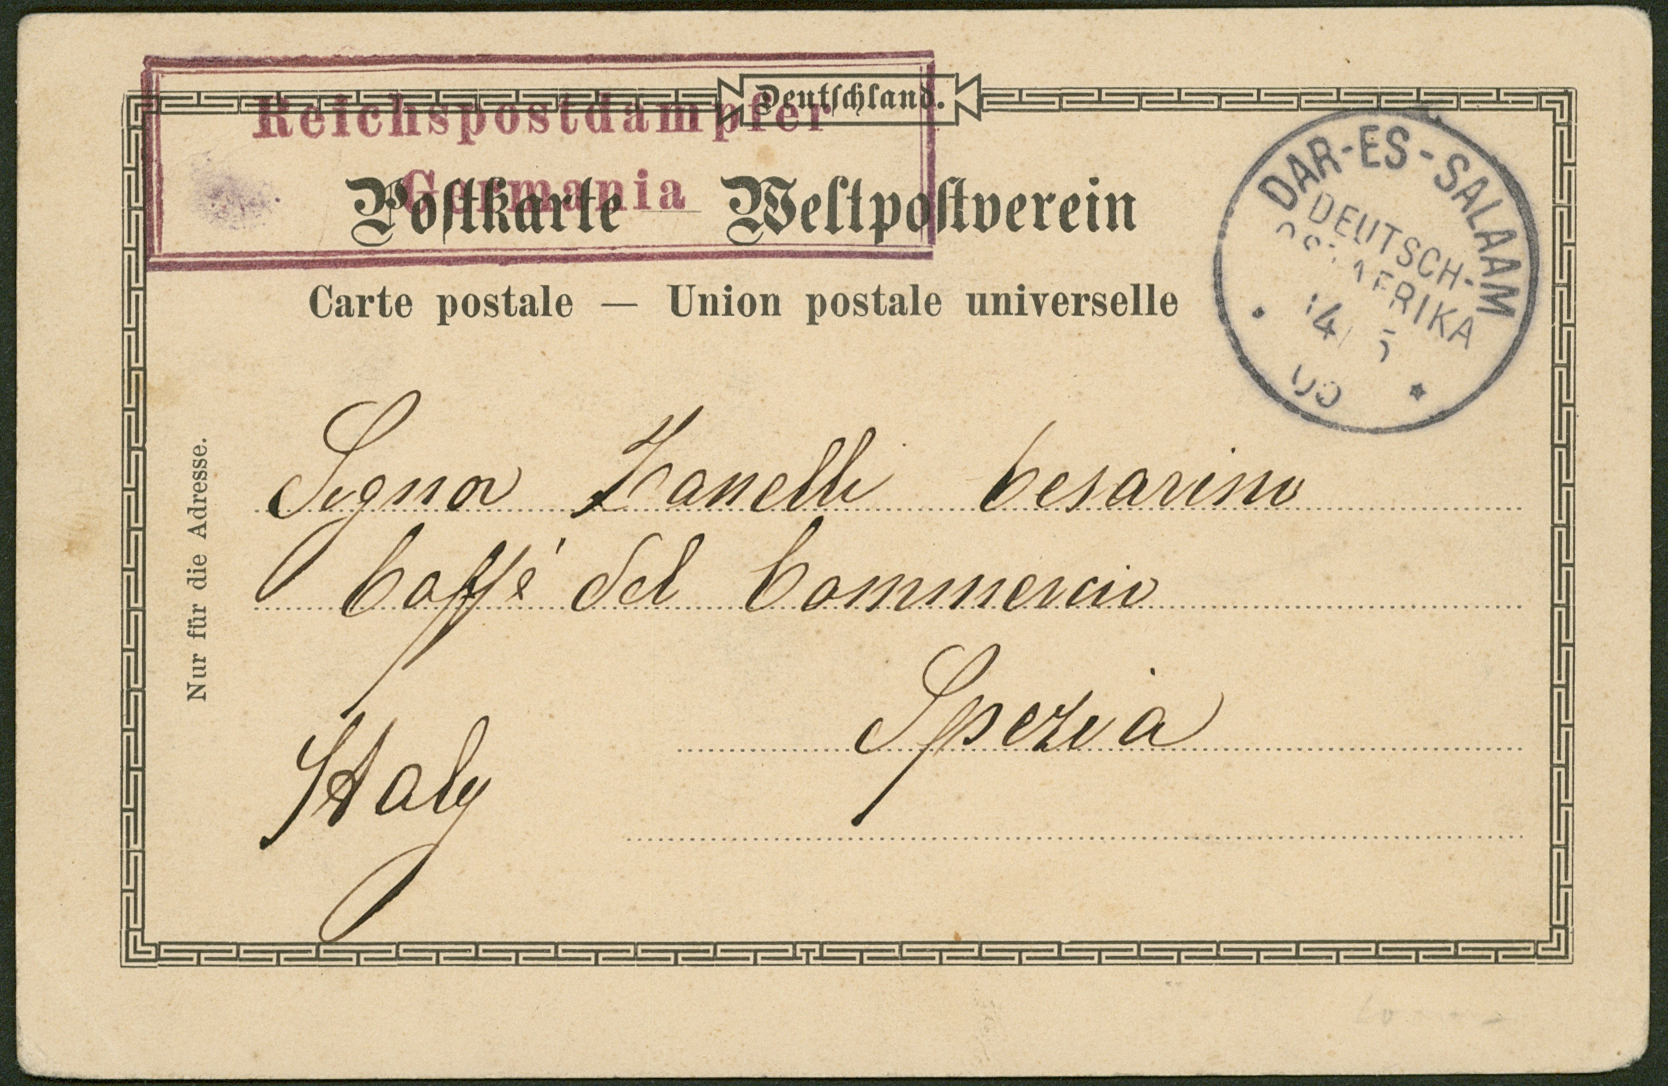 Deutschland.
Reichspostdampfer
Germania
Postkarte — Weltpostverein
Carte postale — Union postale universelle
DAR-ES-SALAAM
DEUTSCH-
OSTAFRIKA
14 5
Nur für die Adresse.
Signor Zanelli Cesarino
Caffé del Commercio
Spezia
Italy